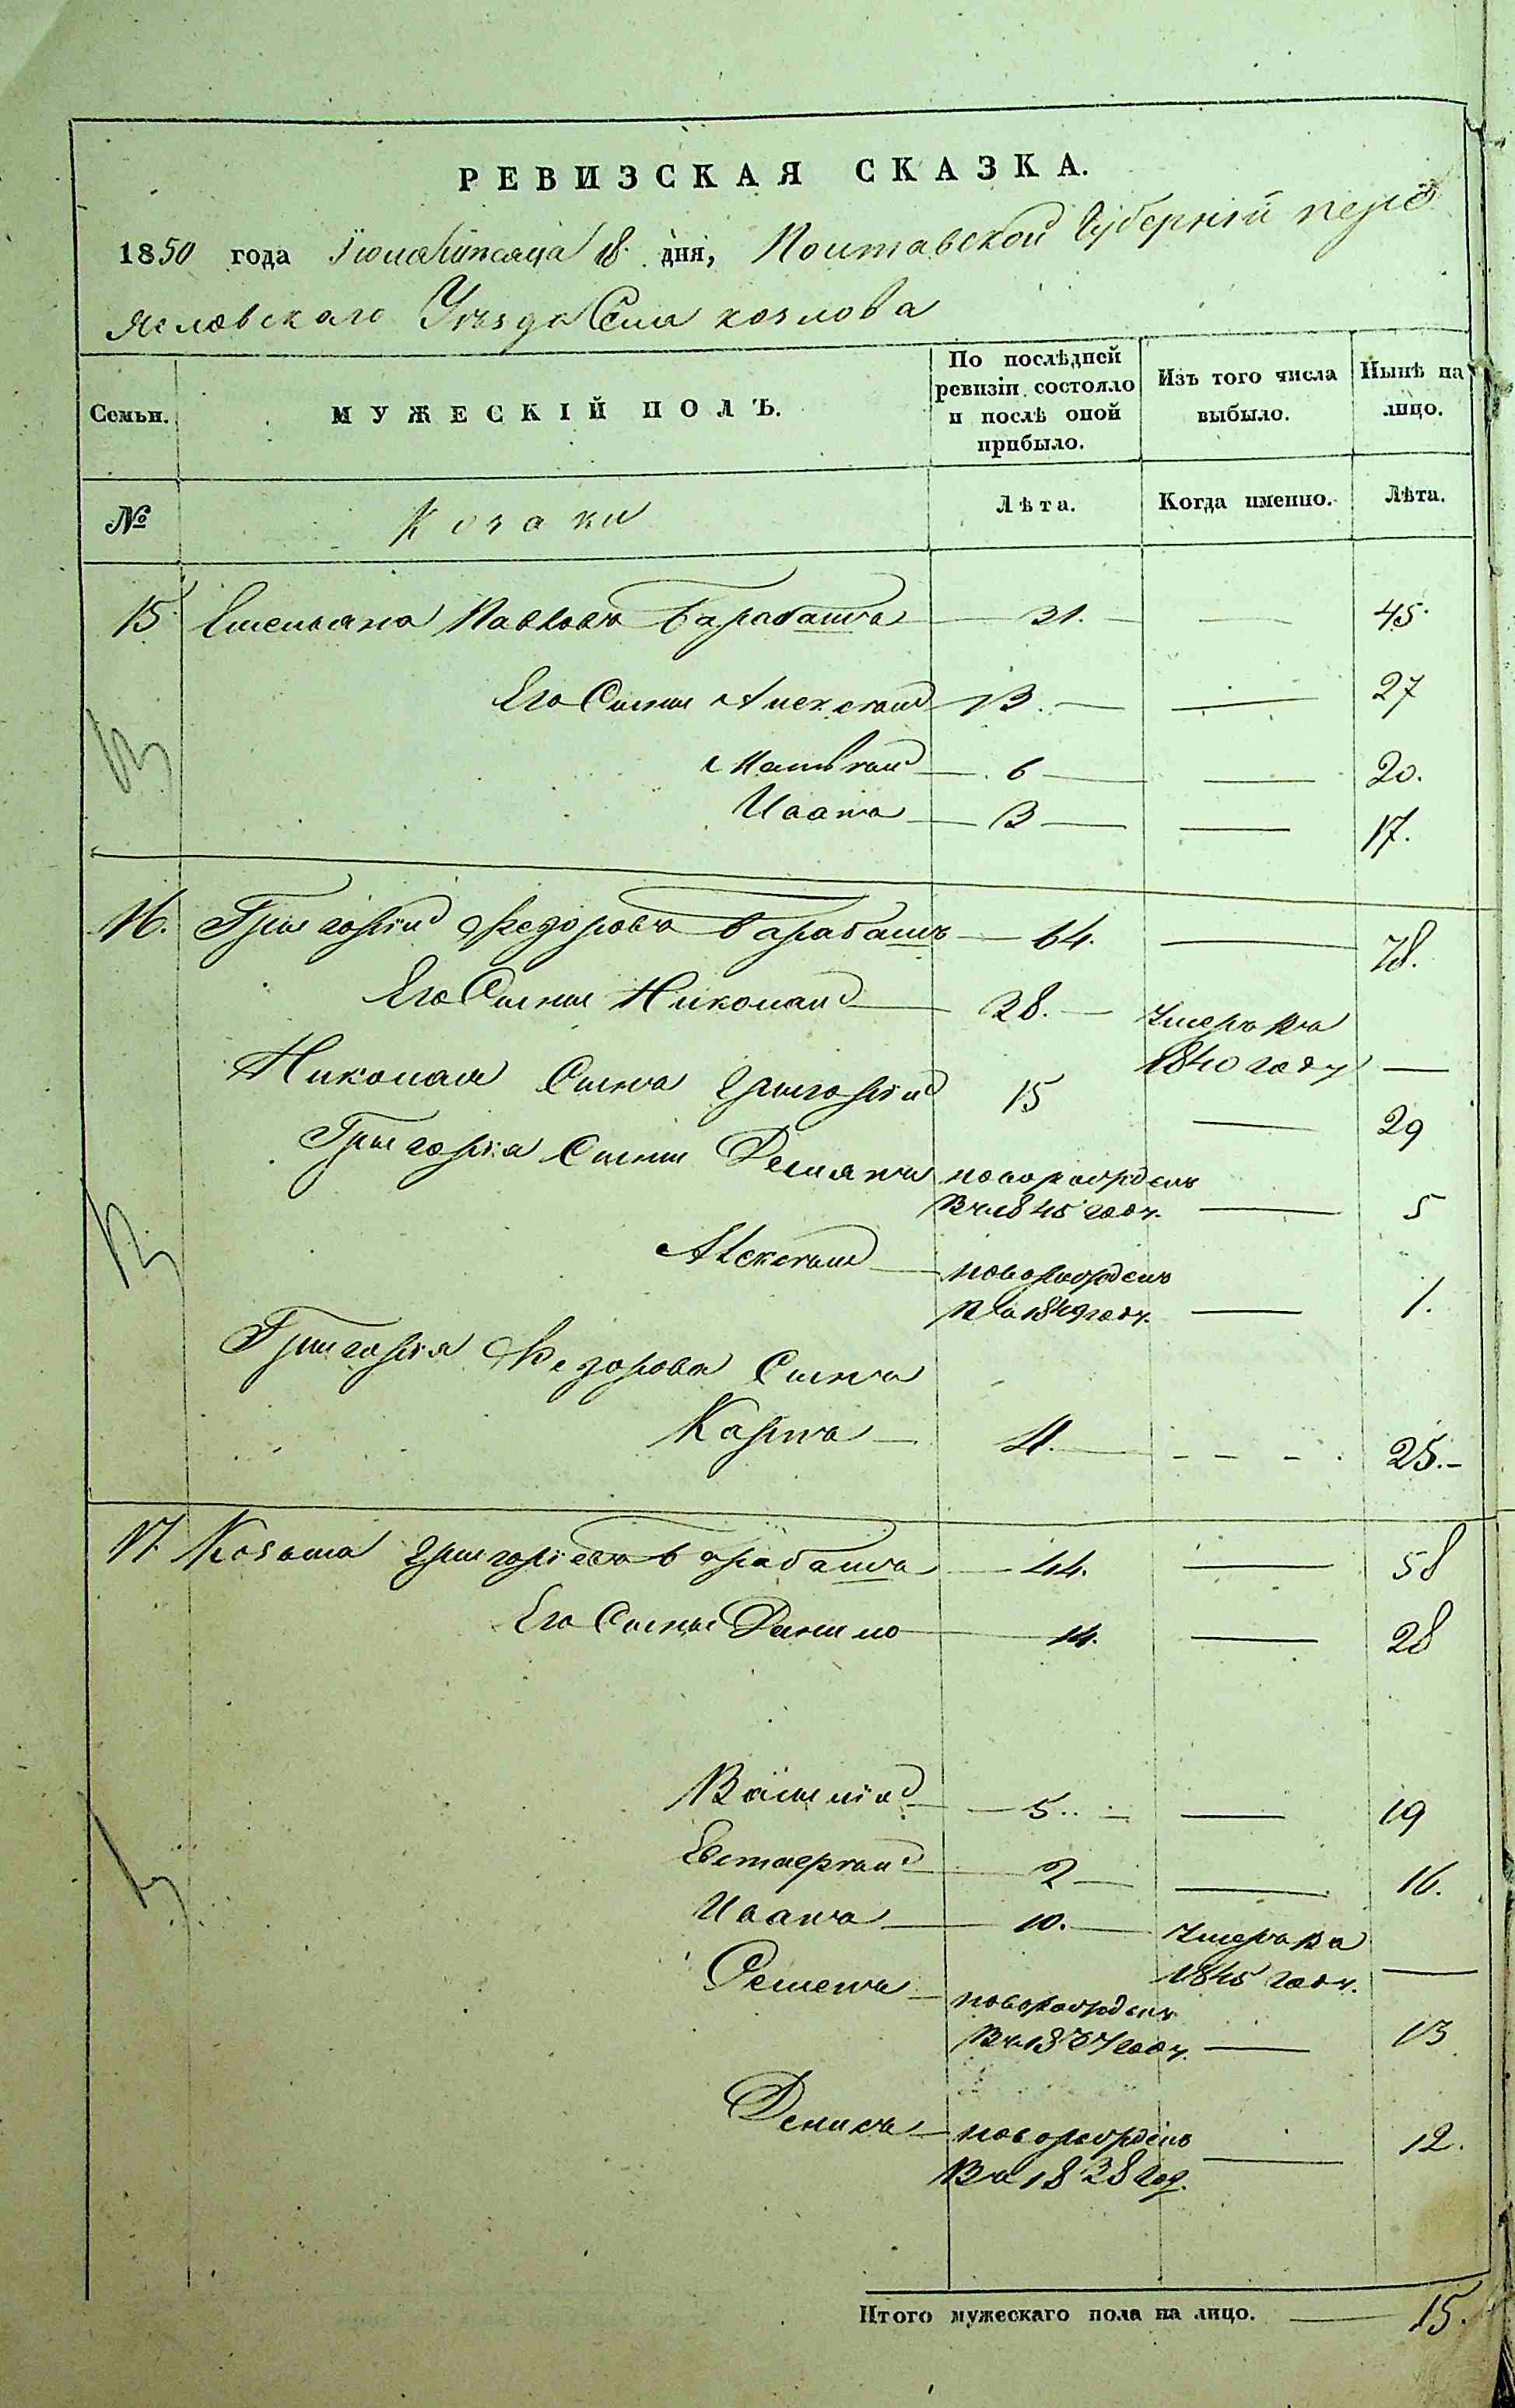 РЕВИЗСКАЯ СКАЗКА.
1850 года Іюля мѣсяца 18 дня, Полтавской Губерніи пере
яславскаго Уѣзда Села козлова
Семьи. МУЖЕСКІЙ ПОЛЪ. По послѣдней ревизіи состояло и послѣ оной прибыло. Изъ того числа выбыло. Нынѣ на лицо.
№ Козаки Лѣта. Когда именно. Лѣта.
15. Емельянъ Павловъ Барабашъ — 31. — — 45.
Его Сыны Алексѣй — 13. — — 27
Матвѣй — 6 — — 20.
Иванъ — 3 — — 17.
16. Григорій Федоровъ Барабашъ — 64. — 78.
Его Сыны Николай — 28. — умеръ въ
1840 году —
Николая Сынъ Григорій 15 — 29
Григорія Сыны Демянъ новорожденъ
въ 1845 году. — 5
Алексѣй — новорожденъ
въ 1849 году. — 1.
Григорія Федорова Сынъ
Карпъ — 11. — - - - 25.-
17. Козьма Григоріевъ Барабашъ — 44. — 58
Его Сыны Данило — 14. — 28
Василій — 5.. — — 19
Евстафій — 2 — — 16.
Иванъ — 10. — умеръ въ
1845 году. —
Семенъ — новорожденъ
въ 1837 году. — 13
Денисъ — новорожденъ
въ 1838 год. — 12.
Итого мужескаго пола на лицо. — 15.